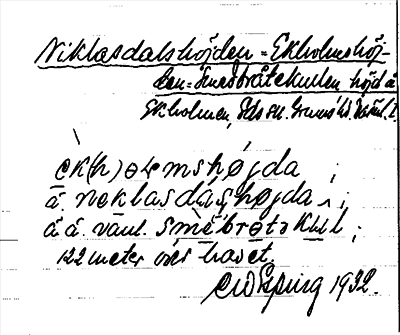 Niklasdalshöjden = Ekholmshöj-
den = Smedbråtekullen höjd å
Ekholmen, Eds sn. Grums hd Värml. l.
ek(h)ɷɫmshøjda ;
å. neklasdàshøjda ;
å å. vanl. smèbrøtəkɯll ;
122 meter över havet.
1932.